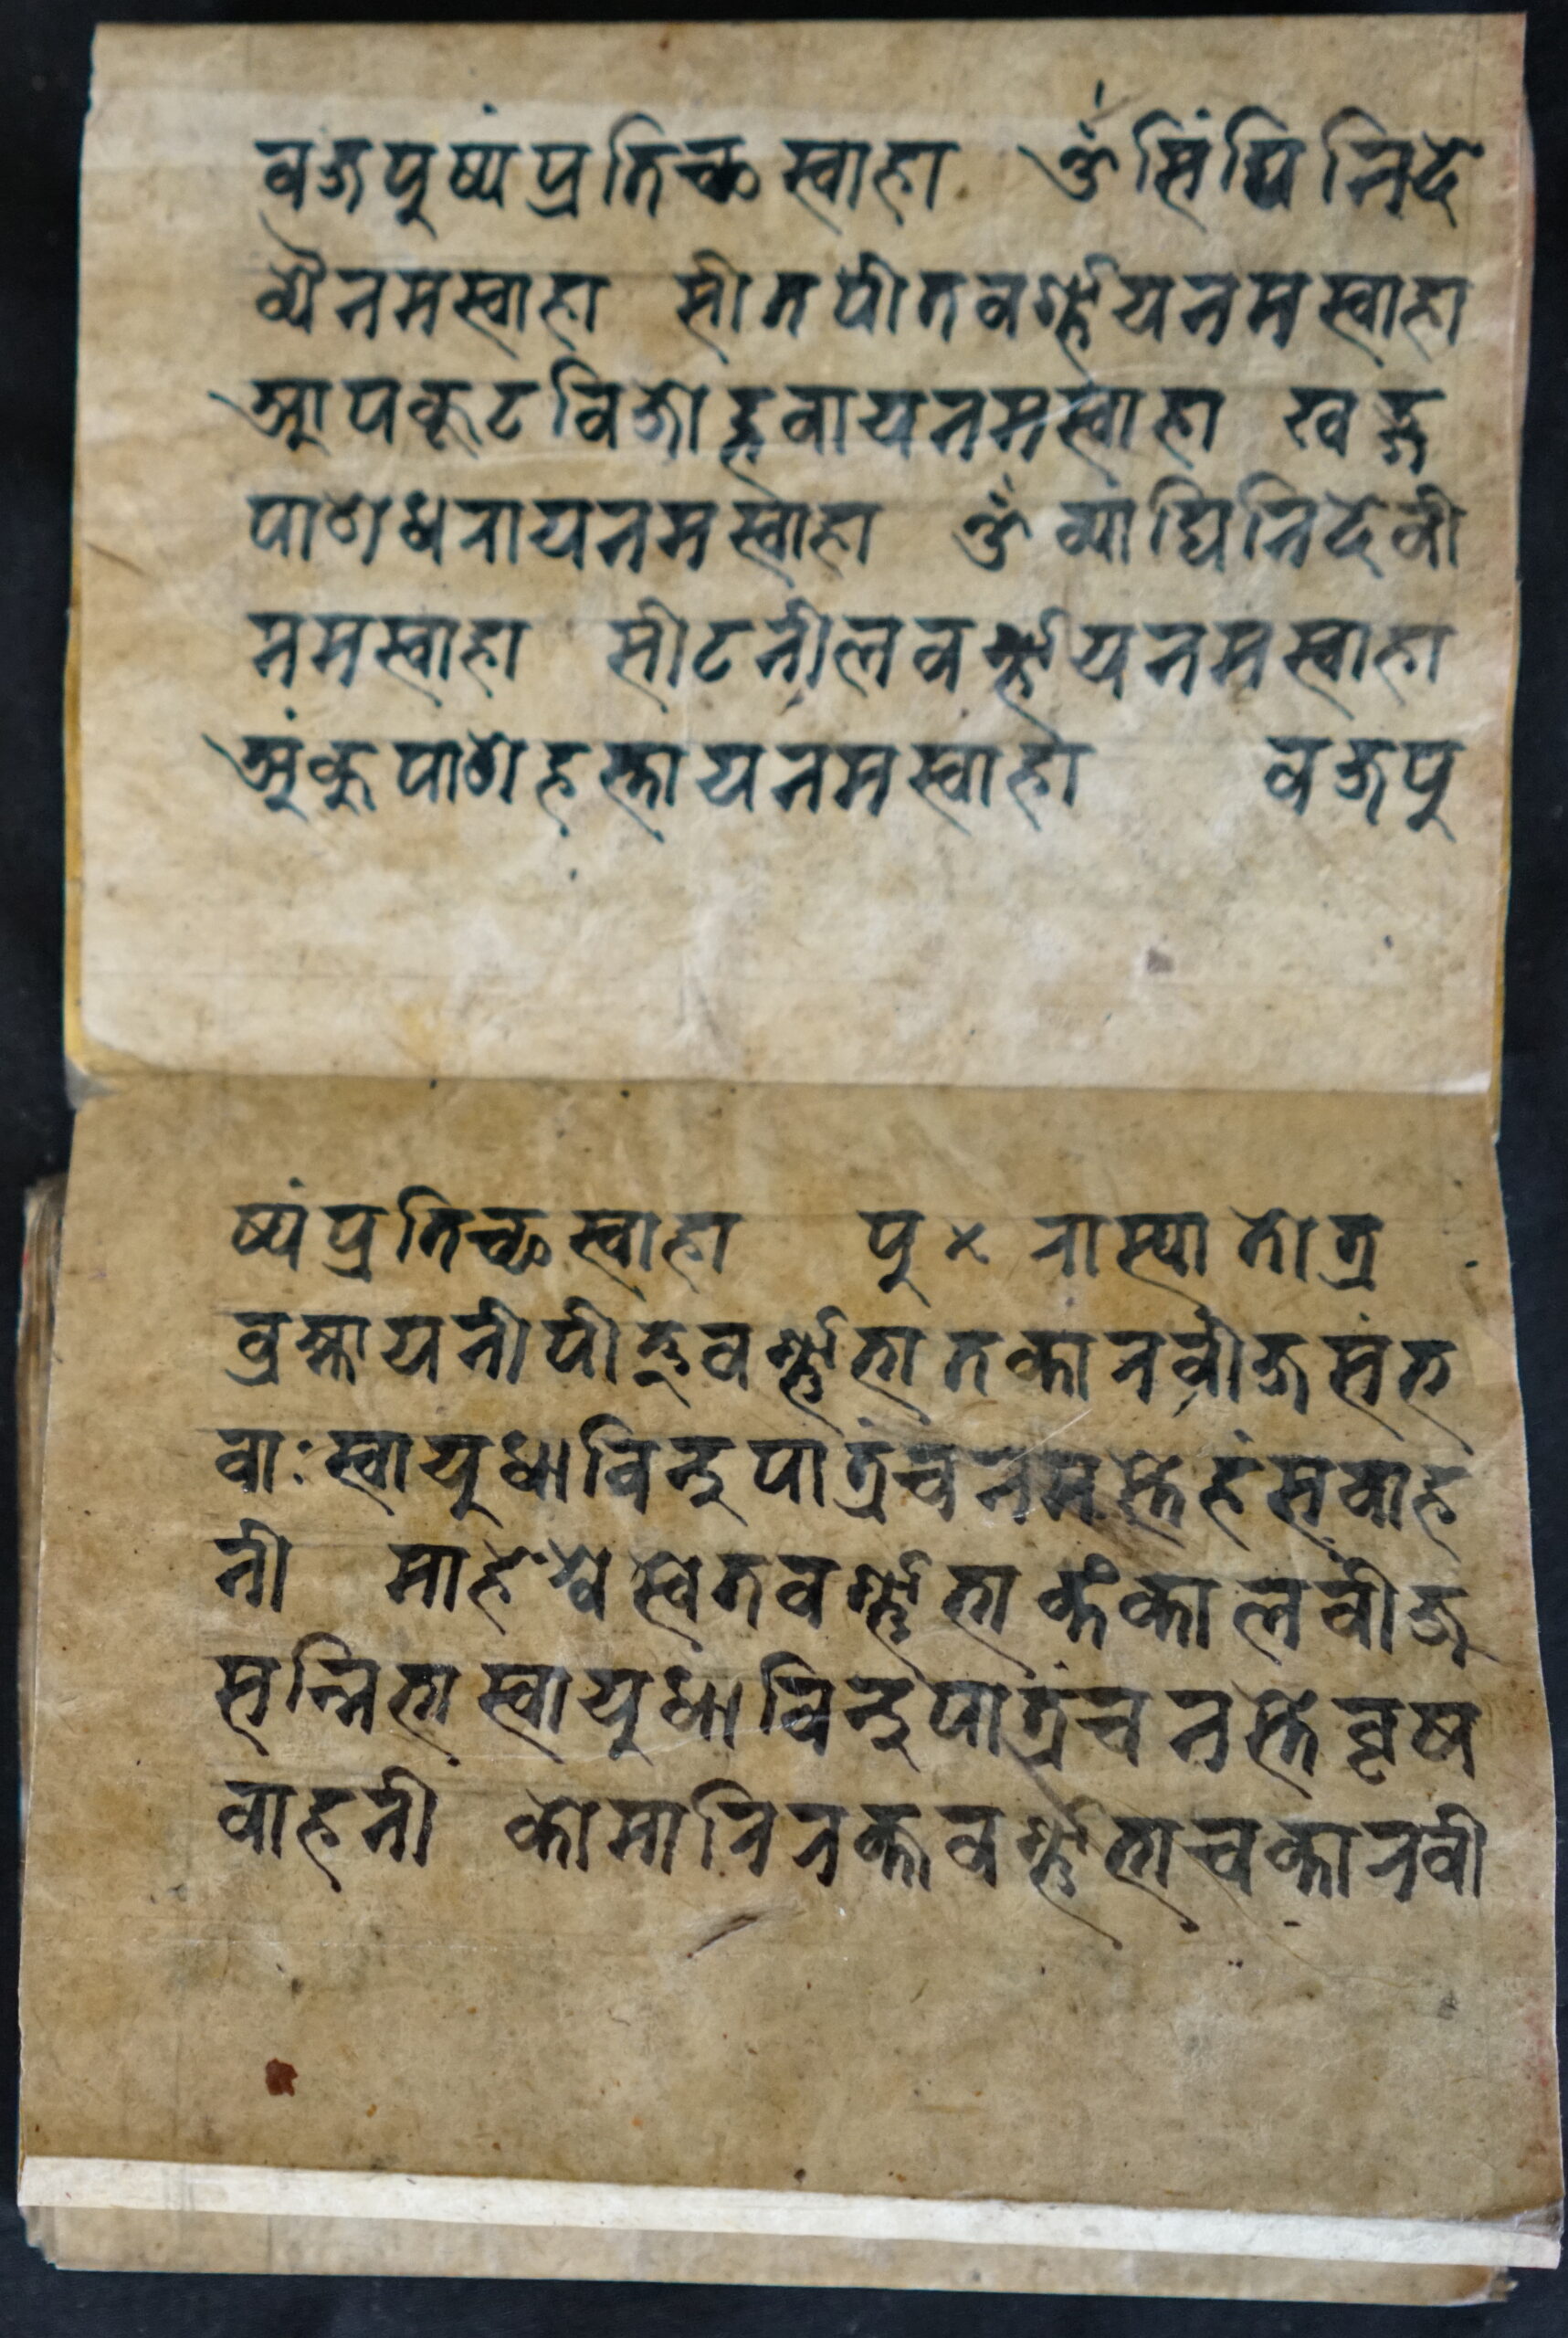 वज्रपुष्पंप्रतिच्छस्वाहा ॐसिंघिनिदे
व्यैनमस्वाहा सीतपीतवर्ण्णायनमस्वाहा
आपकूटविजोद्भवायनमस्वाहा खड्ग
पाशधरायनमस्वाहा ॐव्यांघ्रिनिदेवी
नमस्वाहा सीटनीलवर्ण्णायनमस्वाहा
अंकुपाशहस्तायनमस्वाहा वज्रपु
ष्पंप्रतिच्छस्वाहा पु × रास्यातोत्र
ब्रह्मायनीपीतवर्ण्णाभातकारवीजसंभ
वाः स्वायुधाविन्दुपात्रंचनमस्तेहंसवाह
नी माहेश्वेस्वेतवर्ण्णाभाकंकालवीज
सन्निभास्वायुधाविन्दुपात्रंचनस्तेवृष
वाहनी कोमारिरक्तवर्ण्णाभाचकारवी